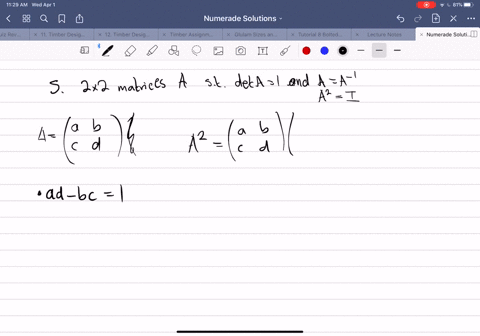 11:29 AM Wed Apr 1
61%
Numerade Solutions
11. Timber Desig...
12. Timber Desig...
Timber Assignm...
Tutorial 8 Bolted...
Lecture Notes
Numerade Solu...
5. 2×2 matrices A s.t. det A = 1 and A = A⁻¹
A² = I
A = (a b
c d)
A² = (a b
c d) (
• ad - bc = 1